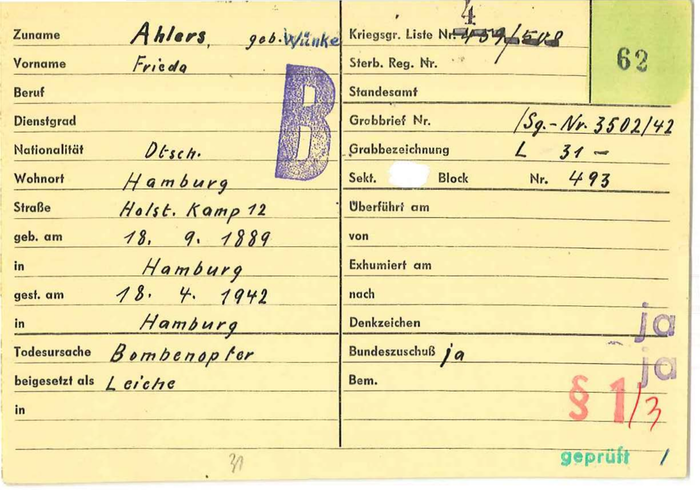 Zuname Ahlers, geb. Wünke
Vorname Frieda
Beruf
Dienstgrad
Nationalität Dtsch.
Wohnort Hamburg
Straße Holst. Kamp 12
geb. am 18. 9. 1889
in Hamburg
gest. am 18. 4. 1942
in Hamburg
Todesursache Bombenopfer
beigesetzt als Leiche
in
B
31
4
Kriegsgr. Liste Nr. 459/508
62
Sterb. Reg. Nr.
Standesamt
Grabbrief Nr. /Sg.-Nr. 3502/42
Grabbezeichnung L 31 –
Sekt. Block Nr. 493
Überführt am
von
Exhumiert am
nach
Denkzeichen ja
Bundeszuschuß ja ja
Bem.
§ 1/3
geprüft /